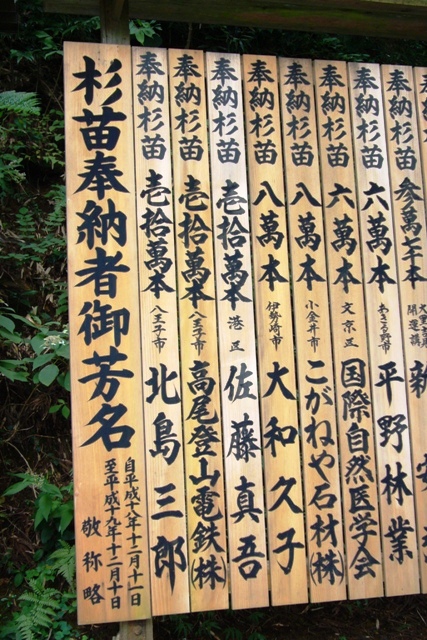 杉苗奉納者御芳名
自平成十八年十二月十一日
至平成十九年十二月十日
敬称略
奉納杉苗 壱拾萬本 八王子市 北島三郎
奉納杉苗 壱拾萬本 八王子市 高尾登山電鉄(株)
奉納杉苗 壱拾萬本 港区 佐藤真吾
奉納杉苗 八萬本 伊勢崎市 大和久子
奉納杉苗 八萬本 小金井市 こがねや石材(株)
奉納杉苗 六萬本 文京区 国際自然医学会
奉納杉苗 六萬本 あきる野市 平野林業
奉納杉苗 参萬七千本 開運講
奉納